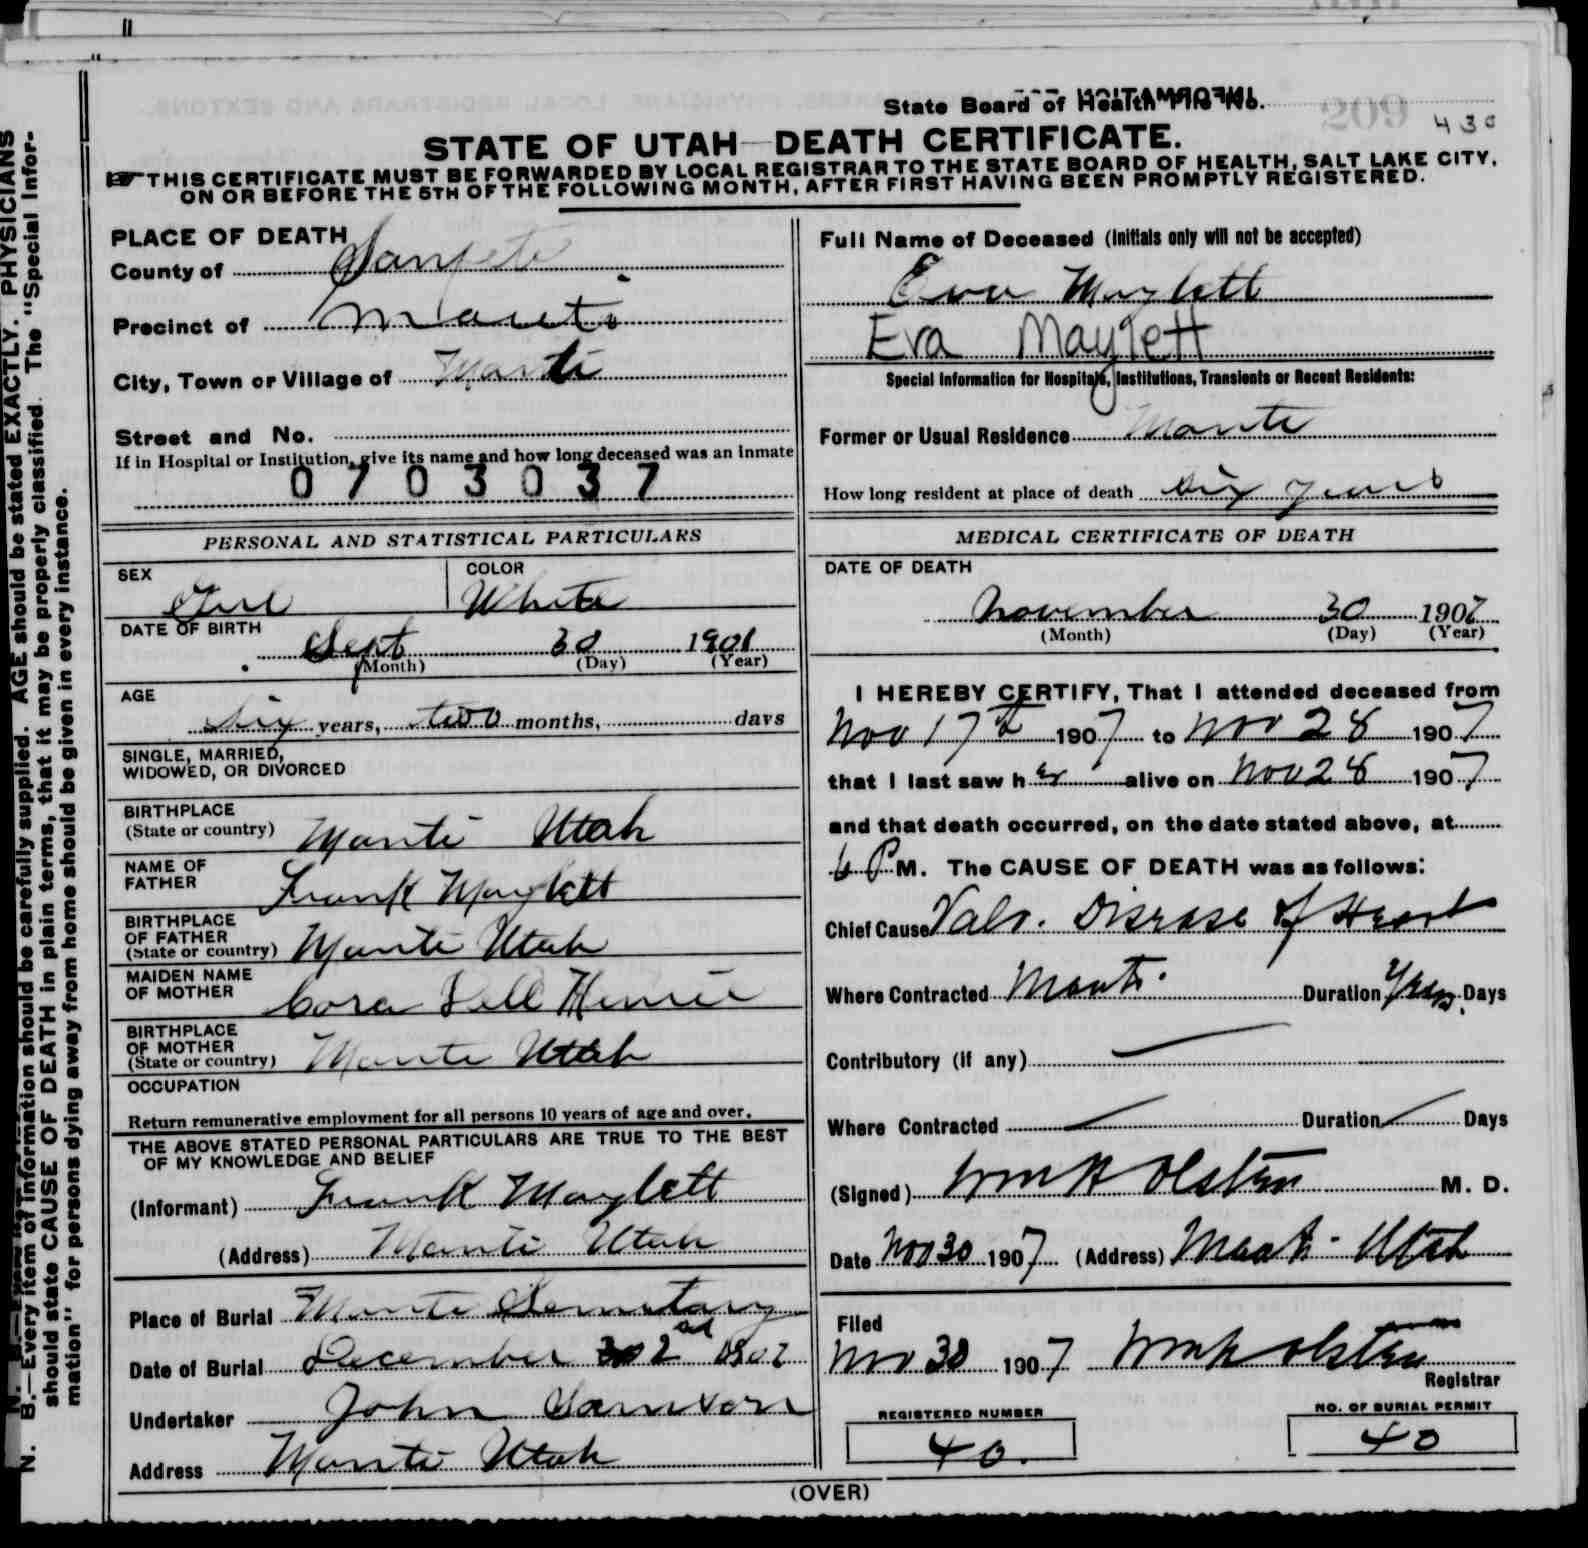 State Board of Health File No.
209
430
STATE OF UTAH—DEATH CERTIFICATE.
THIS CERTIFICATE MUST BE FORWARDED BY LOCAL REGISTRAR TO THE STATE BOARD OF HEALTH, SALT LAKE CITY,
ON OR BEFORE THE 5TH OF THE FOLLOWING MONTH, AFTER FIRST HAVING BEEN PROMPTLY REGISTERED.
PLACE OF DEATH
County of Sanpete
Precinct of Manti
City, Town or Village of Manti
Street and No.
If in Hospital or Institution, give its name and how long deceased was an inmate
0703037
Full Name of Deceased (Initials only will not be accepted)
Eva Maylett
Eva Maylett
Special Information for Hospitals, Institutions, Transients or Recent Residents:
Former or Usual Residence Manti
How long resident at place of death six years
PERSONAL AND STATISTICAL PARTICULARS
SEX Girl
COLOR White
DATE OF BIRTH
Sept 30 1901
(Month) (Day) (Year)
AGE
six years, two months, days
SINGLE, MARRIED,
WIDOWED, OR DIVORCED
BIRTHPLACE
(State or country) Manti Utah
NAME OF
FATHER Frank Maylett
BIRTHPLACE
OF FATHER
(State or country) Manti Utah
MAIDEN NAME
OF MOTHER Cora Dell Henrie
BIRTHPLACE
OF MOTHER
(State or country) Manti Utah
OCCUPATION
Return remunerative employment for all persons 10 years of age and over.
THE ABOVE STATED PERSONAL PARTICULARS ARE TRUE TO THE BEST
OF MY KNOWLEDGE AND BELIEF
(Informant) Frank Maylett
(Address) Manti Utah
Place of Burial Manti Semetary
Date of Burial December 2nd 1907
Undertaker John
Address Manti Utah
MEDICAL CERTIFICATE OF DEATH
DATE OF DEATH
November 30 1907
(Month) (Day) (Year)
I HEREBY CERTIFY, That I attended deceased from
Nov 17th 1907 to Nov 28 1907
that I last saw her alive on Nov 28 1907
and that death occurred, on the date stated above, at
6 P M. The CAUSE OF DEATH was as follows:
Chief Cause Valv. Disease of Heart
Where Contracted Manti. Duration Years. Days
Contributory (if any) —
Where Contracted — Duration — Days
(Signed) Wm H Olsten M. D.
Date Nov 30 1907 (Address) Manti - Utah
Filed
Nov 30 1907 Wm H Olsten
Registrar
REGISTERED NUMBER
40.
NO. OF BURIAL PERMIT
40
(OVER)
N. B.—Every item of information should be carefully supplied. AGE should be stated EXACTLY. PHYSICIANS
should state CAUSE OF DEATH in plain terms, that it may be properly classified. The "Special Infor-
mation" for persons dying away from home should be given in every instance.